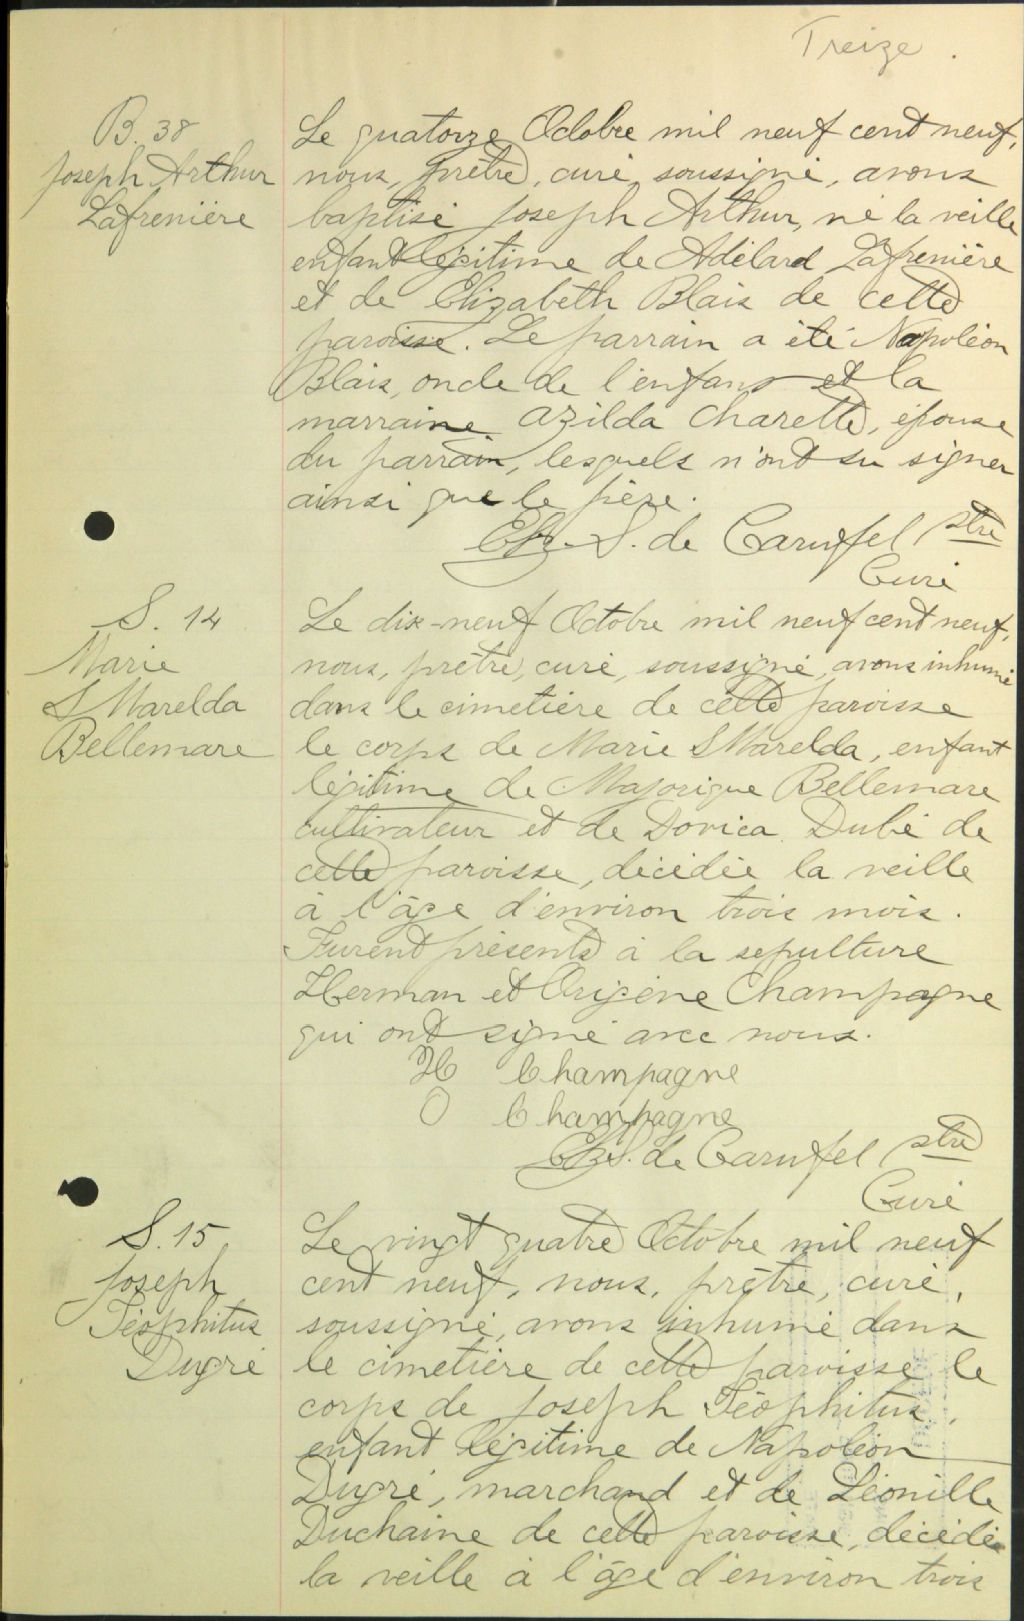 Treize.
B. 38
Joseph Arthur
Lafrenière
Le quatorze Octobre mil neuf cent neuf,
nous, prêtre, curé, soussigné, avons
baptisé Joseph Arthur, né la veille
enfant légitime de Adélard Lafrenière
et de Elizabeth Blais de cette
paroisse. Le parrain a été Napoléon
Blais, oncle de l'enfant et la
marraine Azilda Charette, épouse
du parrain, lesquels n'ont su signer
ainsi que le père.
Chs. S. de Carufel ptre
Curé
S. 14
Marie
S Marelda
Bellemare
Le dix-neuf Octobre mil neuf cent neuf,
nous, prêtre, curé, soussigné, avons inhumé
dans le cimetière de cette paroisse
le corps de Marie S Marelda, enfant
légitime de Majorique Bellemare
cultivateur et de Dorica Dubé de
cette paroisse, décédée la veille
à l'âge d'environ trois mois.
Furent présents à la sepulture
Herman et Origène Champagne
qui ont signé avec nous.
H Champagne
O Champagne
Chs. S. de Carufel ptre
Curé
S. 15
Joseph
Téophitus
Dugré
Le vingt quatre Octobre mil neuf
cent neuf, nous, prêtre, curé,
soussigné, avons inhumé dans
le cimetière de cette paroisse le
corps de Joseph Téophitus,
enfant légitime de Napoléon
Dugré, marchand et de Léonille
Duchaine de cette paroisse, décédé
la veille à l'âge d'environ trois